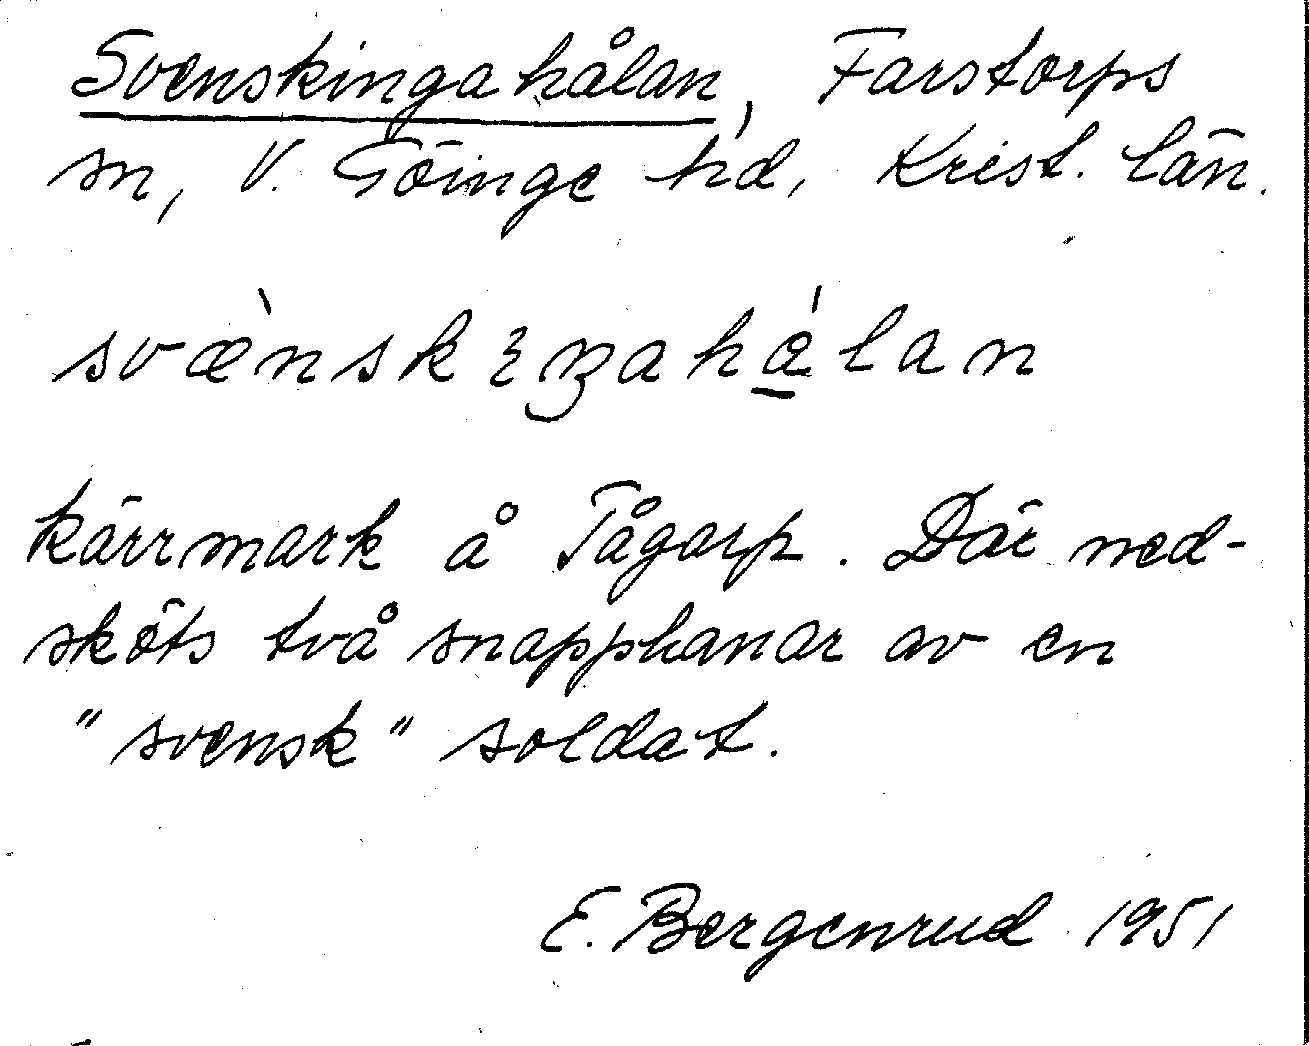 Svenskingahålan, Farstorps
sn, V. Göinge hd, Krist. län.
svæ̀nskıŋahá̱lan
kärrmark å Tågarp. Där ned-
sköts två snapphanar av en
"svensk" soldat.
E. Bergenrud 1951